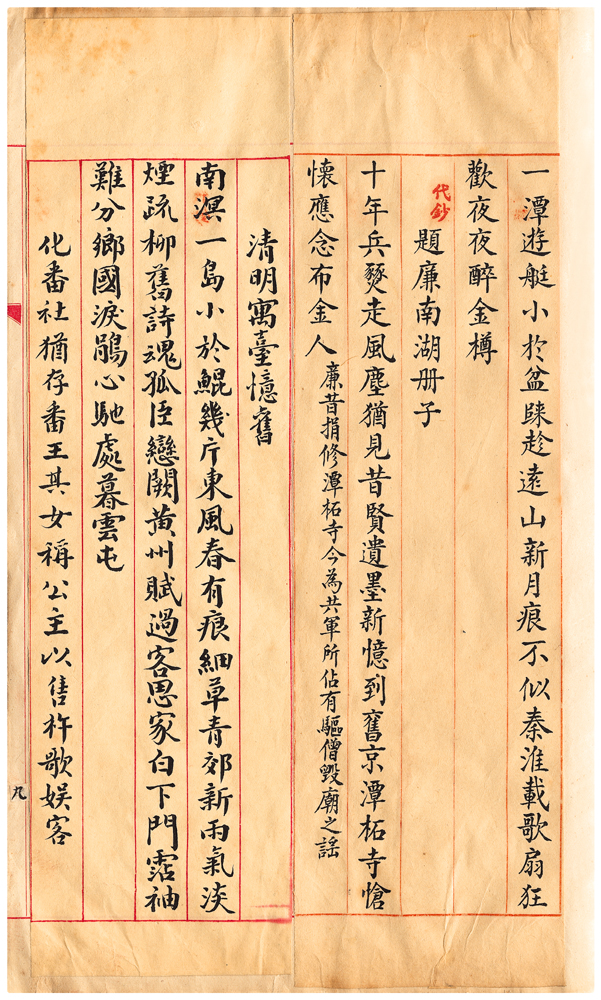 一潭遊艇小於盆睞趁遠山新月痕不似秦淮載歌扇狂
歡夜夜醉金樽
代鈔
題廉南湖册子
十年兵燹走風塵猶見昔賢遺墨新憶到舊京潭柘寺愴
懷應念布金人 廉昔捐修潭柘寺今為共軍所佔有驅僧毀廟之謠
清明寓臺憶舊
南溟一島小於鯤幾片東風春有痕細草青郊新雨氣淡
煙疏柳舊詩魂孤臣戀闕黃州賦過客思家白下門霑袖
難分鄉國淚鵑心馳處暮雲屯
化番社猶存番王其女稱公主以售杵歌娛客
九